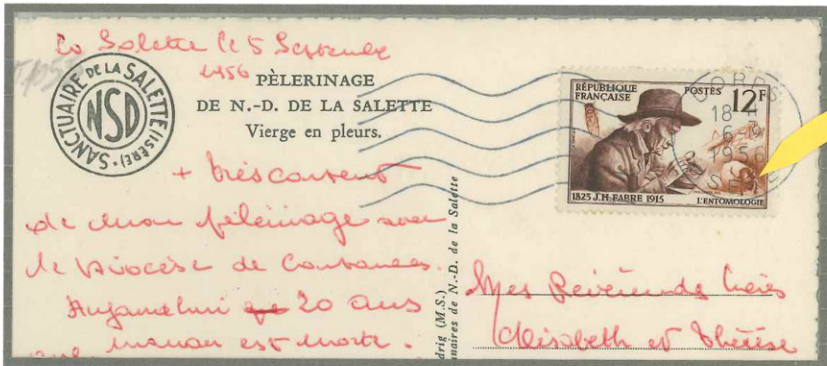 La Salette le 5 Septembre
1956
SANCTUAIRE DE LA SALETTE (ISÈRE)
NSD
PÈLERINAGE
DE N.-D. DE LA SALETTE
Vierge en pleurs.
+ très content
de mon pèlerinage avec
le Diocèse de Coutances.
Aujourd'hui 20 ans
que maman est morte.
drig (M.S.)
nnaires de N.-D. de la Salette
RÉPUBLIQUE
FRANÇAISE
POSTES
12F
1825 J.H. FABRE 1915
L'ENTOMOLOGIE
CORPS
18 H
6-9
1956
Mes Révérendes
Elisabeth et Thérèse